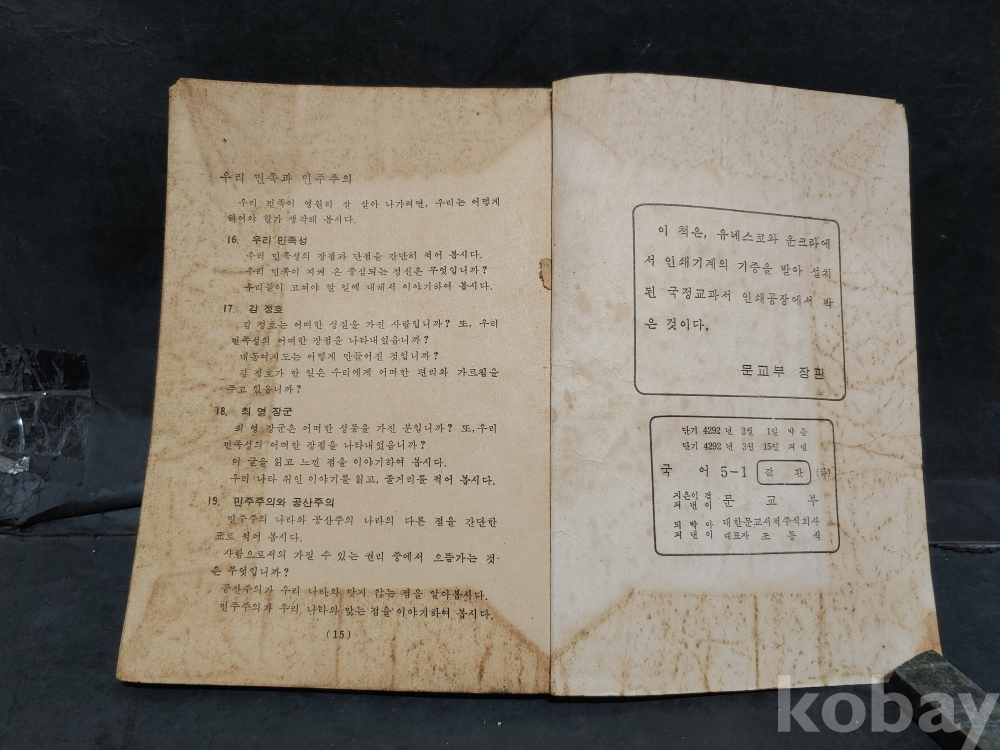 우리 민족과 민주주의
우리 민족이 영원히 잘 살아 나가려면, 우리는 어떻게
하여야 할가 생각해 봅시다.
16. 우리 민족성
우리 민족성의 장점과 단점을 간단히 적어 봅시다.
우리 민족이 지켜 온 중심되는 정신은 무엇입니까?
우리들이 고쳐야 할 일에 대해서 이야기하여 봅시다.
17. 김 정호
김 정호는 어떠한 성질을 가진 사람입니까? 또, 우리
민족성의 어떠한 장점을 나타내었읍니까?
대동여지도는 어떻게 만들어진 것입니까?
김 정호가 한 일은 우리에게 어떠한 편리와 가르침을
주고 있읍니까?
18. 최 영 장군
최 영 장군은 어떠한 성품을 가진 분입니까? 또, 우리
민족성의 어떠한 장점을 나타내었읍니까?
이 글을 읽고 느낀 점을 이야기하여 봅시다.
우리 나라 위인 이야기를 읽고, 줄거리를 적어 봅시다.
19. 민주주의와 공산주의
민주주의 나라와 공산주의 나라의 다른 점을 간단한
표로 적어 봅시다.
사람으로서의 가질 수 있는 권리 중에서 으뜸가는 것
은 무엇입니까?
공산주의가 우리 나라와 맞지 않는 점을 알아봅시다.
민주주의가 우리 나라와 맞는 점을 이야기하여 봅시다.
(15)
이 책은, 유네스코와 운크라에
서 인쇄기계의 기증을 받아 설치
된 국정교과서 인쇄공장에서 박
은 것이다.
문교부 장관
단기 4292 년 3월 1일 박음
단기 4292 년 3월 15일 펴냄
국 어 5-1 값 환
지은이 겸
펴낸이 문 교 부
박아
펴낸이 대한문교서적주식회사
대표자 조 등 식
kobay